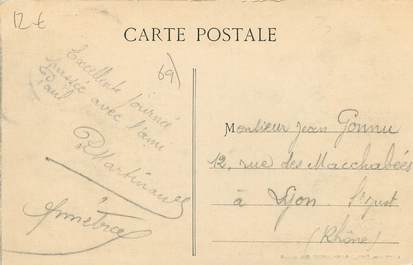 12 €
CARTE POSTALE
69
Excellente journée
passée avec l'ami
Paul
Monsieur Jean Gonnu
12, rue des Macchabées
à Lyon. St Just
(Rhône)